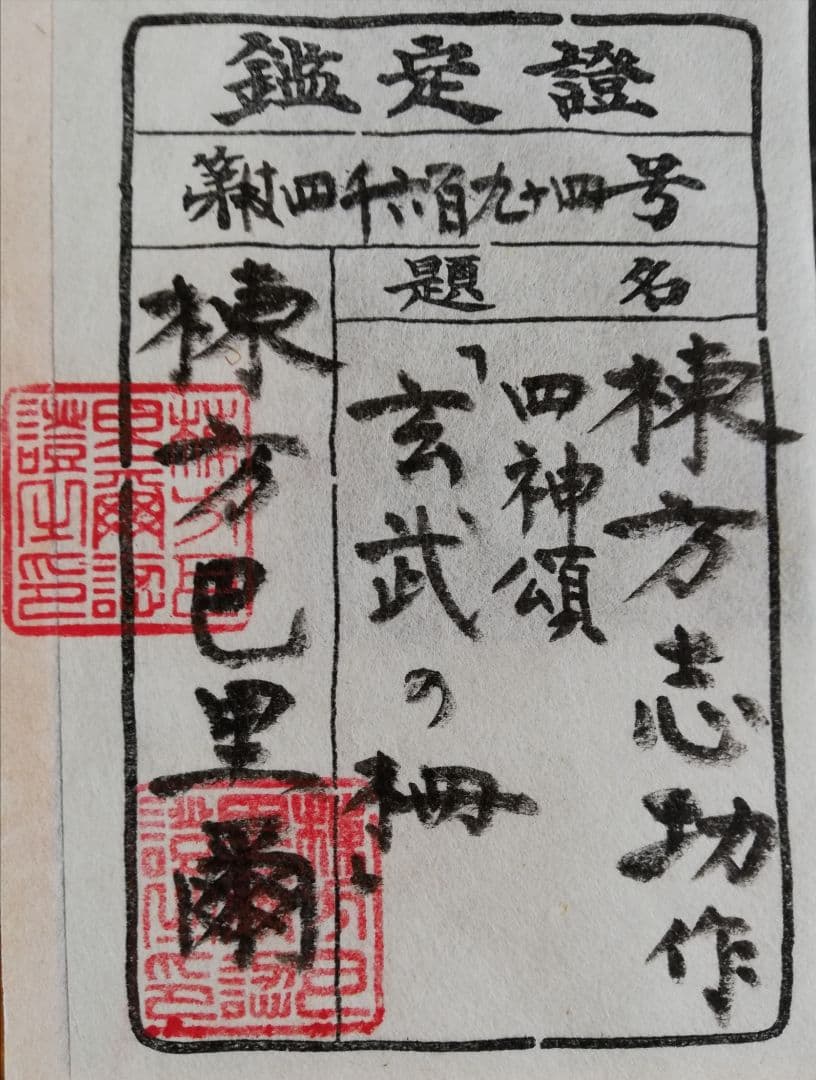 鑑定證
第四千六百九十四号
題名
棟方志功作
四神頌
「玄武の柵」
棟方巴里爾
棟方巴
里爾認
證之印
棟方巴
里爾認
證之印